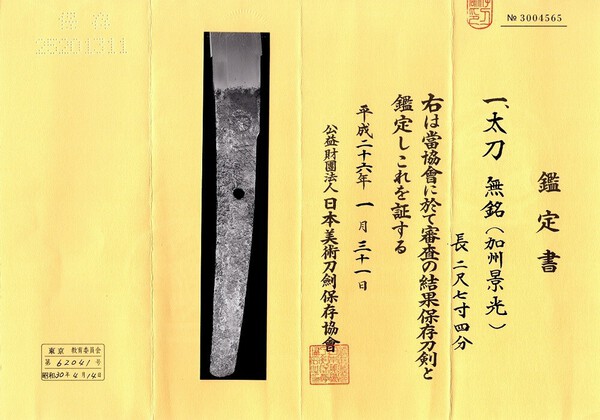 № 3004565
鑑定書
一、太刀 無銘(加州景光)
長 二尺七寸四分
右は當協會に於て審査の結果保存刀剣と
鑑定しこれを証する
平成二十六年 一月 三十一日
公益財團法人 日本美術刀劍保存協會
保存
25201311
東京 教育委員会
第 62041 号
昭和30年4月14日